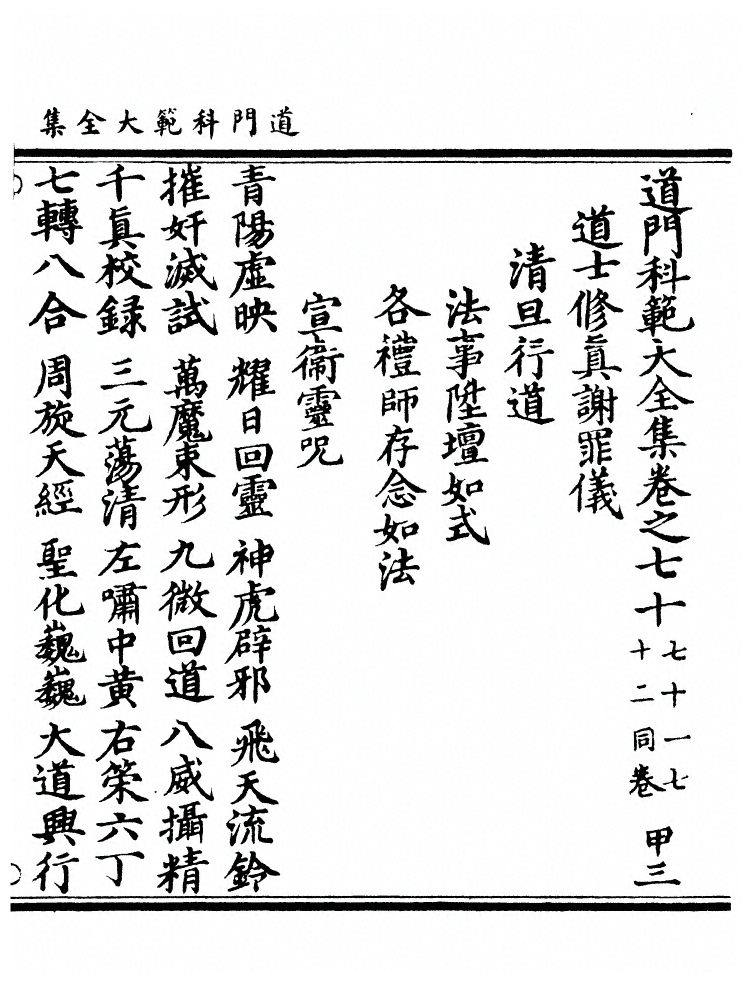 道門科範大全集
道門科範大全集卷之七十 七十一七十二同卷 甲三
道士修真謝罪儀
清旦行道
法事陞壇如式
各禮師存念如法
宣衛靈呪
青陽虛映 耀日回靈 神虎辟邪 飛天流鈴
摧奸滅試 萬魔束形 九微回道 八威攝精
千眞校録 三元蕩清 左嘯中黄 右榮六丁
七轉八合 周旋天經 聖化巍巍 大道興行